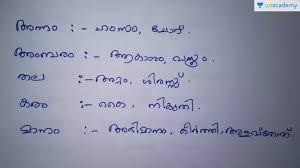 unacademy
അന്നം :- ഹംസം, ചോറ്.
അംബരം :- ആകാശം, വസ്ത്രം.
തല :- അറ്റം, ശിരസ്സ്.
കരം :- കൈ, നികുതി.
മാനം :- അഭിമാനം, കീർത്തി,